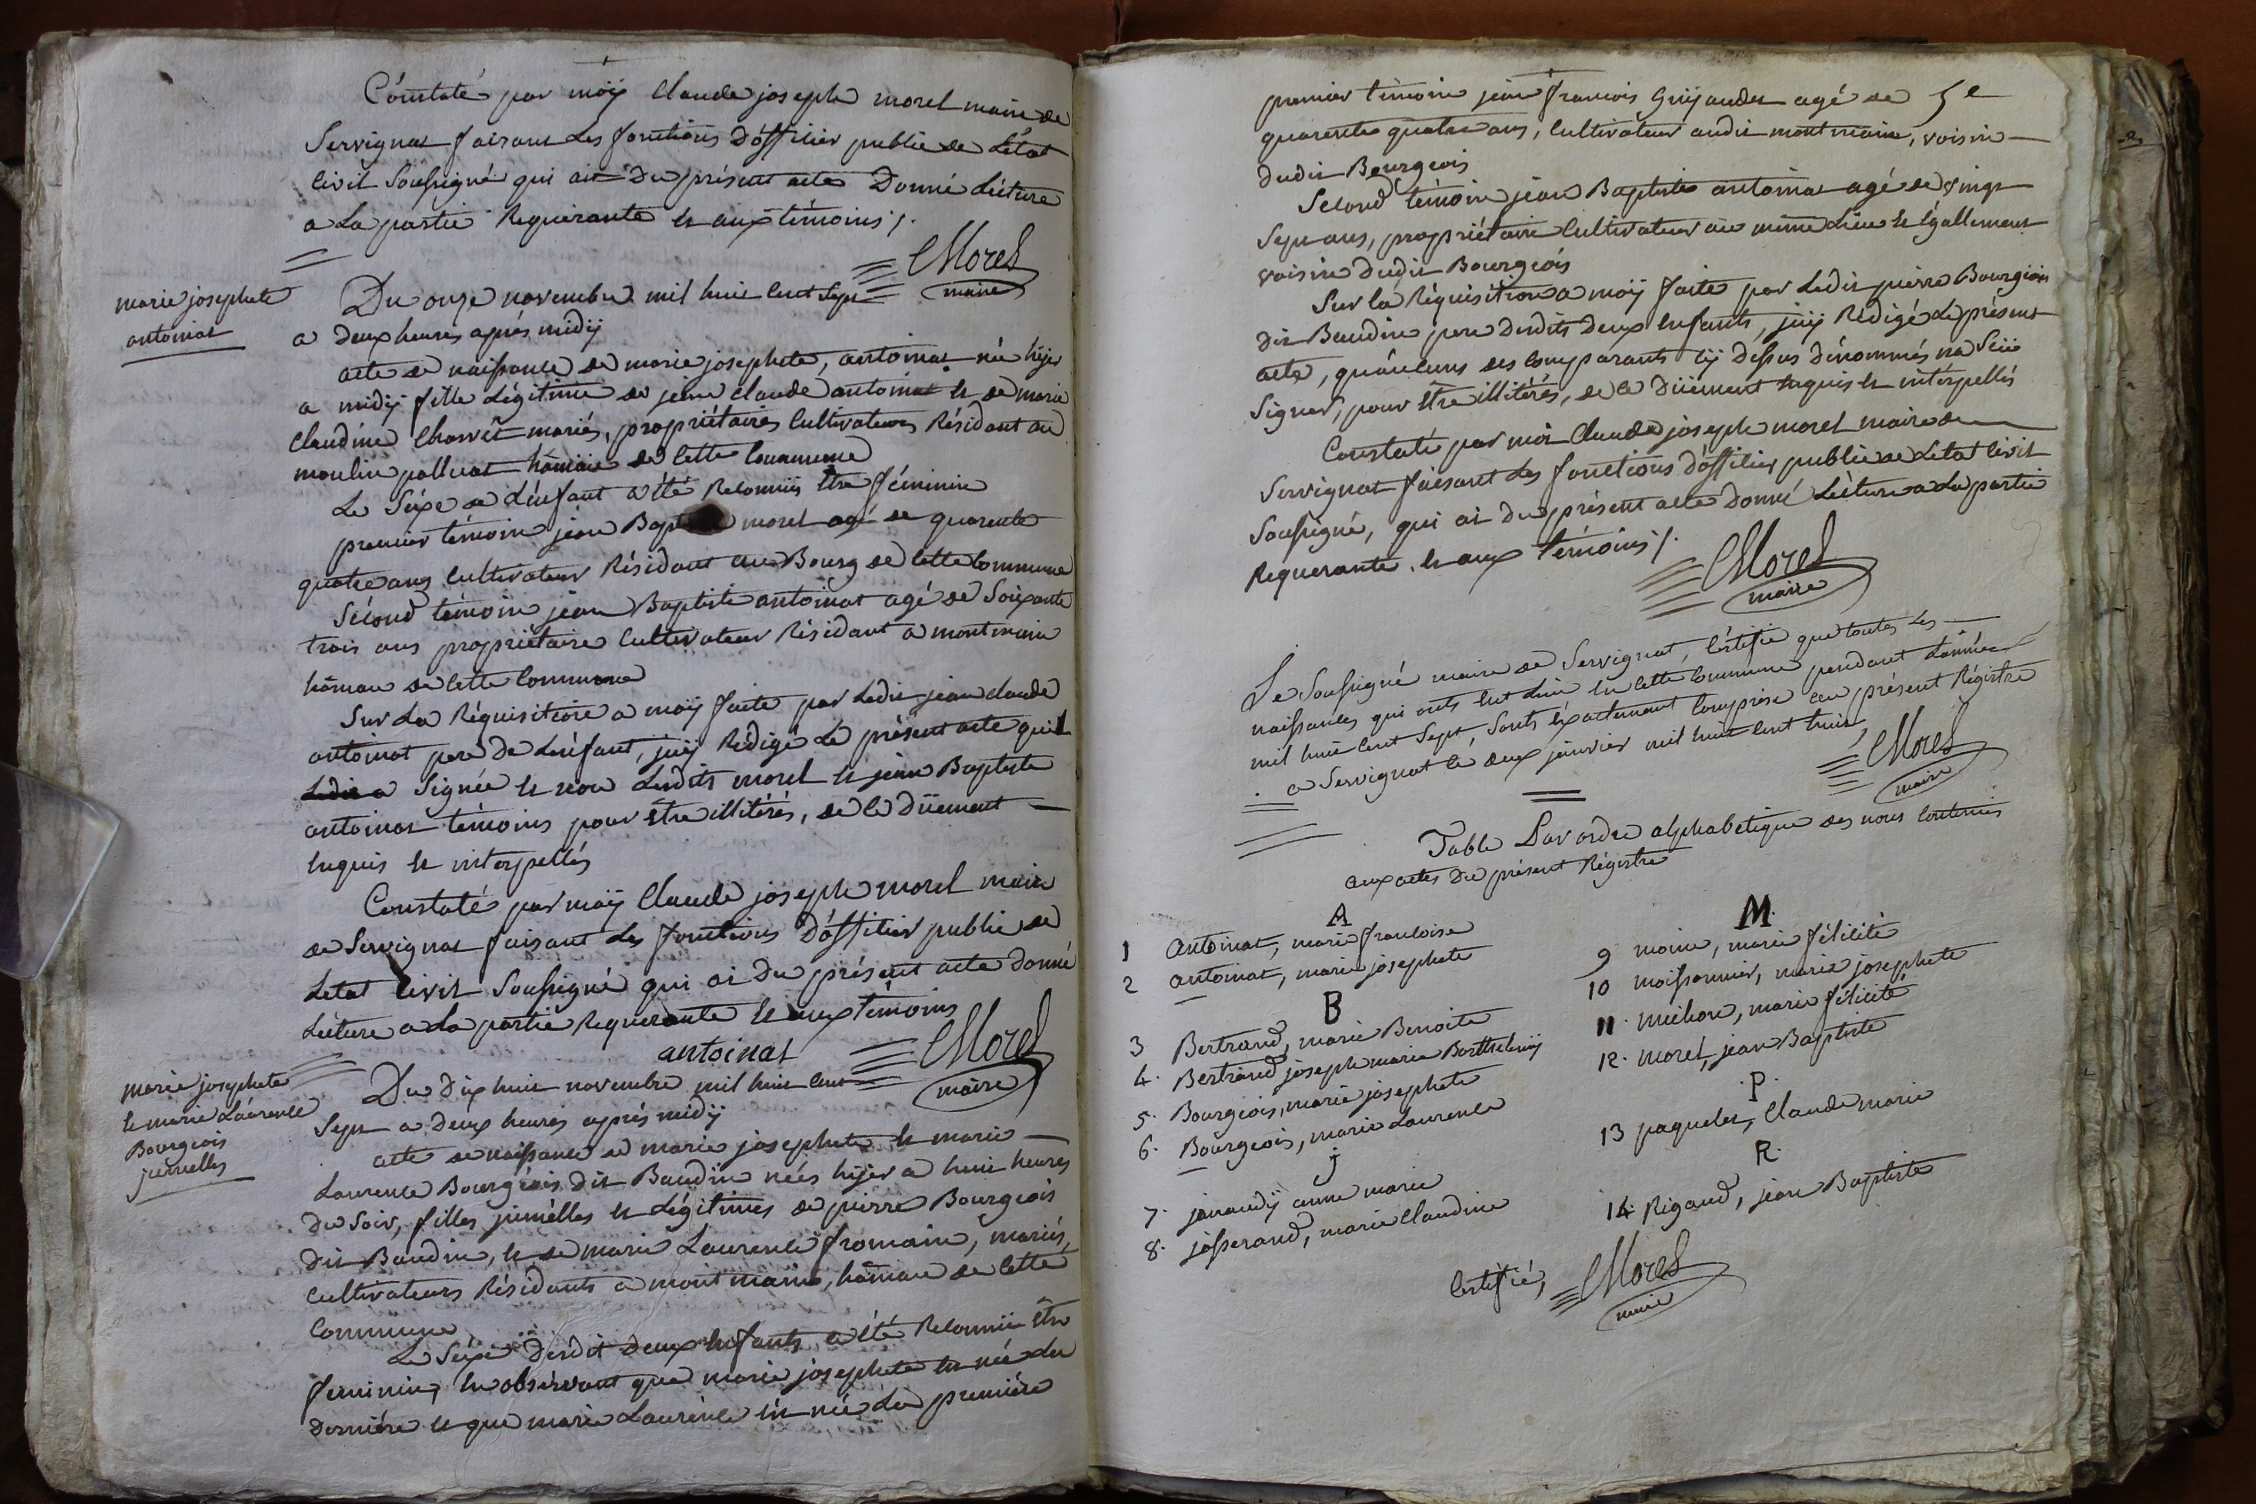 Constaté par moÿ Claude joseph morel maire de
Servignat faisant les fonctions d'officier public de L'état
civil soussigné qui ait du présent acte Donné Lecture
a La partie Requerante et aux témoins /.
Morel
maire
marie josephete
antoinat
Du onze novembre mil huit cent sept
a deux heures après midÿ
acte de naissance de marie josephete, antoinat née hÿer
a midÿ fille Légitime de jean claude antoinat et de marie
claudine Charvet mariés, propriétaires Cultivateurs Résidant au
moulin palluat hámau de cette Commune
Le Séxe de L'enfant a été Reconnüe Etre féminin
premier témoin jean Bap morel agé de quarente
quatre ans Cultivateur Résidant au Bourg de cette Commune
Sécond témoin jean Baptiste antoinat agé de Soixante
trois ans propriétaire Cultivateur Résidant a montmain
hámau de cette Commune
Sur La Réquisitoire a moÿ faite par Ledit jean claude
antoinat pere De Lenfant, jaÿ Rédigé Le présent acte quil
a Signée et non Lesdits morel et jean Baptiste
antoinat témoins pour être illitérés, de ce Düement
enquis et interpellés
Constaté par moÿ Claude joseph morel maire
de Servignat faisant Les fonctions D'officier public de
Létat civil Soussigné qui ai Du présent acte donné
Lécture a La partie Requerante et aux témoins
antoinat
Morel
maire
marie josephete
et marie Laurence
Bourgeois
jumelles
Du Dix huit novembre mil huit cent
Sept a Deux heures après midÿ
acte de naissance de marie josephete et marie
Laurence Bourgeois dit Baudin nées hÿer a huit heures
du Soir, filles jumélles et Légitimes de pierre Bourgeois
dit Baudin, et de marie Laurence fromain, mariés,
cultivateurs Résidants a mont main, hámau de cette
Commune,
Le Séxe Desdit deux Enfants a été Reconnüe être
feminin, En observant que marie josephete Est née La
Derniére et que marie Laurence est née La première
5e
premier témoin jean francois Guÿaudet agé de
quarente quatre ans, Cultivateur audit montmain, voisin
dudit Bourgeois
Second témoin jean Baptiste antoinat agé de vingt
Sept ans, propriétaire Cultivateur au même Lieu et Egallement
voisin dudit Bourgeois
Sur la Réquisition a moÿ faite par Ledit pierre Bourgeois
dit Baudin pere Desdits deux Enfants, jaÿ Rédigé Le présent
acte, qu'aucuns des Comparants cÿ Dessus dénommés na Scüe
Signer, pour être illitérés, de ce Düement Enquis et interpellés
Constaté par moi Claude joseph morel maire de
Servignat faisant Les fonctions d'officier public de Létat civil
Soussigné, qui ai Du présent acte Donné Lécture a La partie
Requerante et aux témoins /.
Morel
maire
Le Soussigné maire de Servignat, Certifie que toutes Les
naissances qui onts Eut Lieu En cette Commune pendant Lánnée
mil huit cent Sept, Sonts Exactement Comprise au présent Régistre
a Servignat Le deux janvier mil huit cent huit
Morel
maire
Table Par ordre alphabétique des noms Contenus
aux actes du présent Régistre
A
1 Antoinat, marie francoise
2 antoinat, marie josephete
B
3 Bertrand, marie Benoite
4. Bertrand joseph marie Barthelemÿ
5. Bourgeois, marie josephete
6. Bourgeois, marie Laurence
j
7. janaudÿ anne marie
8. josserand, marie Claudine
M.
9 moine, marie félicité
10 moissonnier, marie josephete
11. michon, marie félicité
12. morel, jean Baptiste
.P.
13 paquelet, Claude marie
R.
14. Rigaud, jean Baptiste
Certifié,
Morel
maire